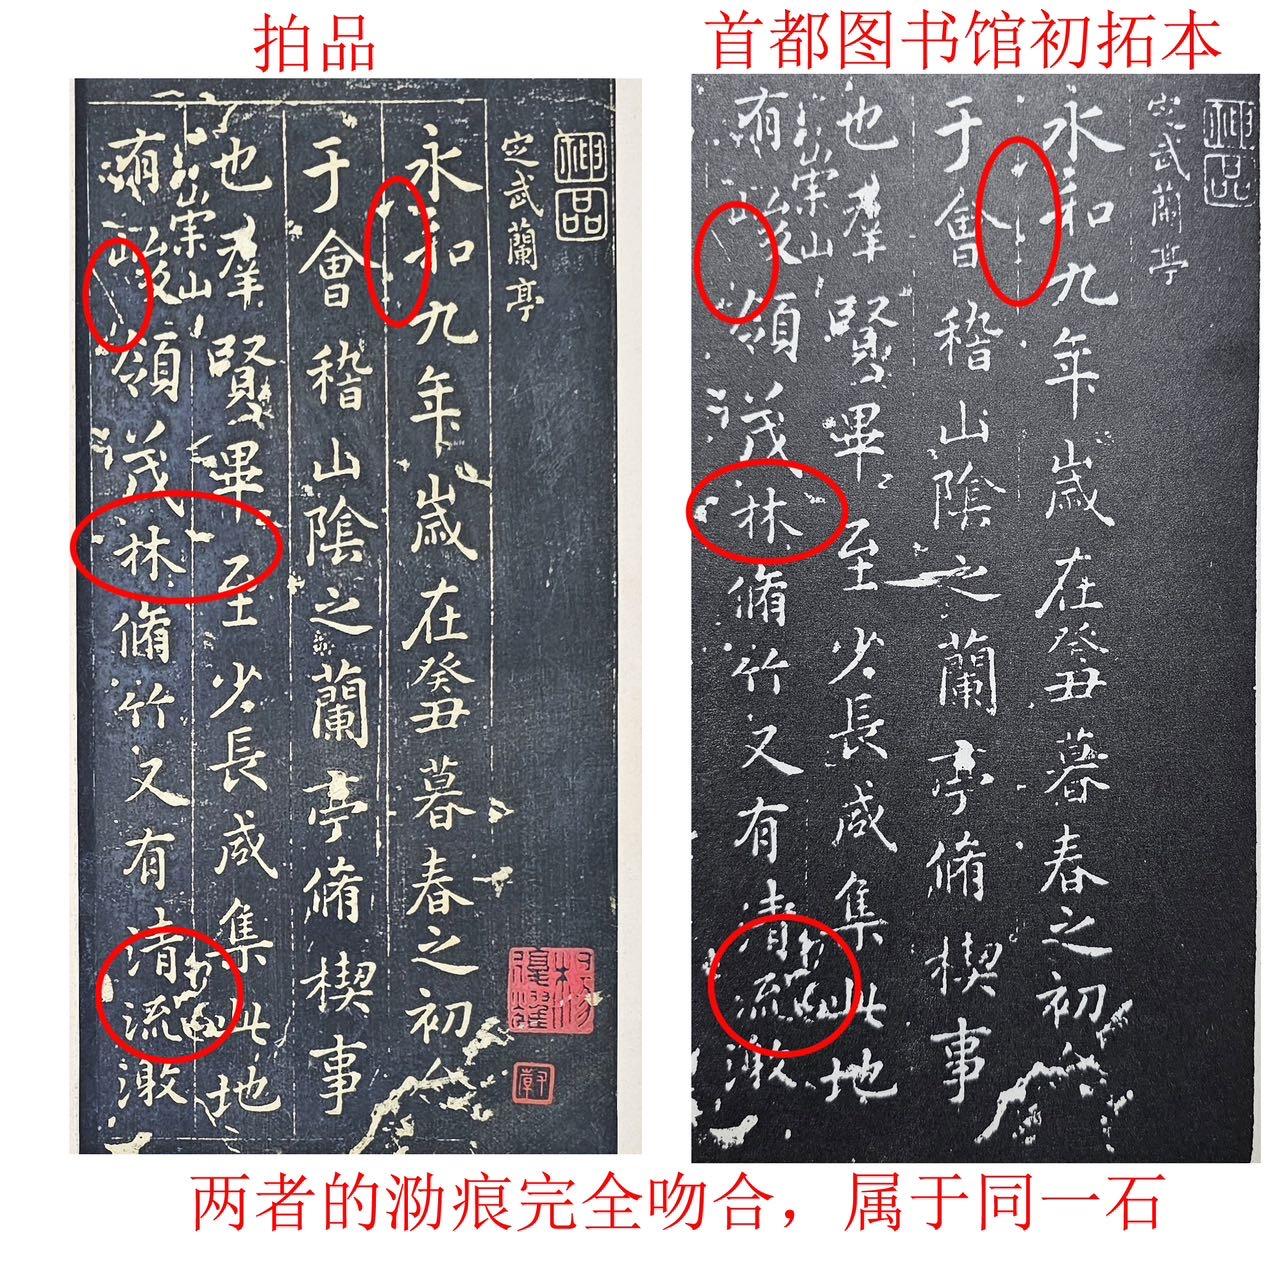 拍品
首都图书馆初拓本
神品
定武蘭亭
永和九年歲在癸丑暮春之初
于會稽山陰之蘭亭脩禊事
也羣賢畢至少長咸集此地
有崇山峻領茂林脩竹又有清流激
神品
定武蘭亭
永和九年歲在癸丑暮春之初
于會稽山陰之蘭亭脩禊事
也羣賢畢至少長咸集此地
有崇山峻領茂林脩竹又有清流激
两者的泐痕完全吻合，属于同一石